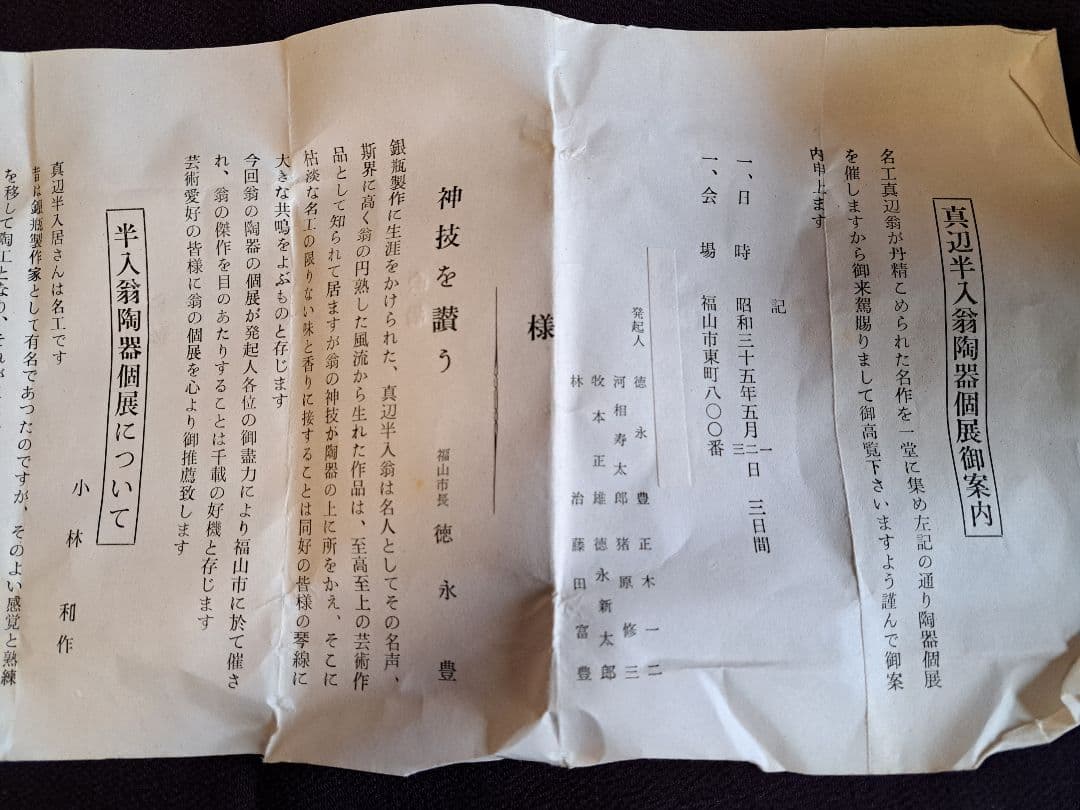 真辺半入翁陶器個展御案内
名工真辺翁が丹精こめられた名作を一堂に集め左記の通り陶器個展
を催しますから御来駕賜りまして御高覧下さいますよう謹んで御案
内申上ます
記
一、日時 昭和三十五年五月一二三日 三日間
一、会場 福山市東町八〇〇番
発起人
徳永豊 正木一二
河相寿太郎 猪原修三
牧本正雄 徳永新太郎
林治 藤田富豊
様
神技を讃う
福山市長 徳永豊
銀瓶製作に生涯をかけられた、真辺半入翁は名人としてその名声、
斯界に高く翁の円熟した風流から生れた作品は、至高至上の芸術作
品として知られて居ますが翁の神技が陶器の上に所をかえ、そこに
枯淡な名工の限りない味と香りに接することは同好の皆様の琴線に
大きな共鳴をよぶものと存じます
今回翁の陶器の個展が発起人各位の御盡力により福山市に於て催さ
れ、翁の傑作を目のあたりすることは千載の好機と存じます
芸術愛好の皆様に翁の個展を心より御推薦致します
半入翁陶器個展について
小林利作
真辺半入居さんは名工です
昔は銀瓶製作家として有名であつたのですが、そのよい感覚と熟練
を移して陶工となり、